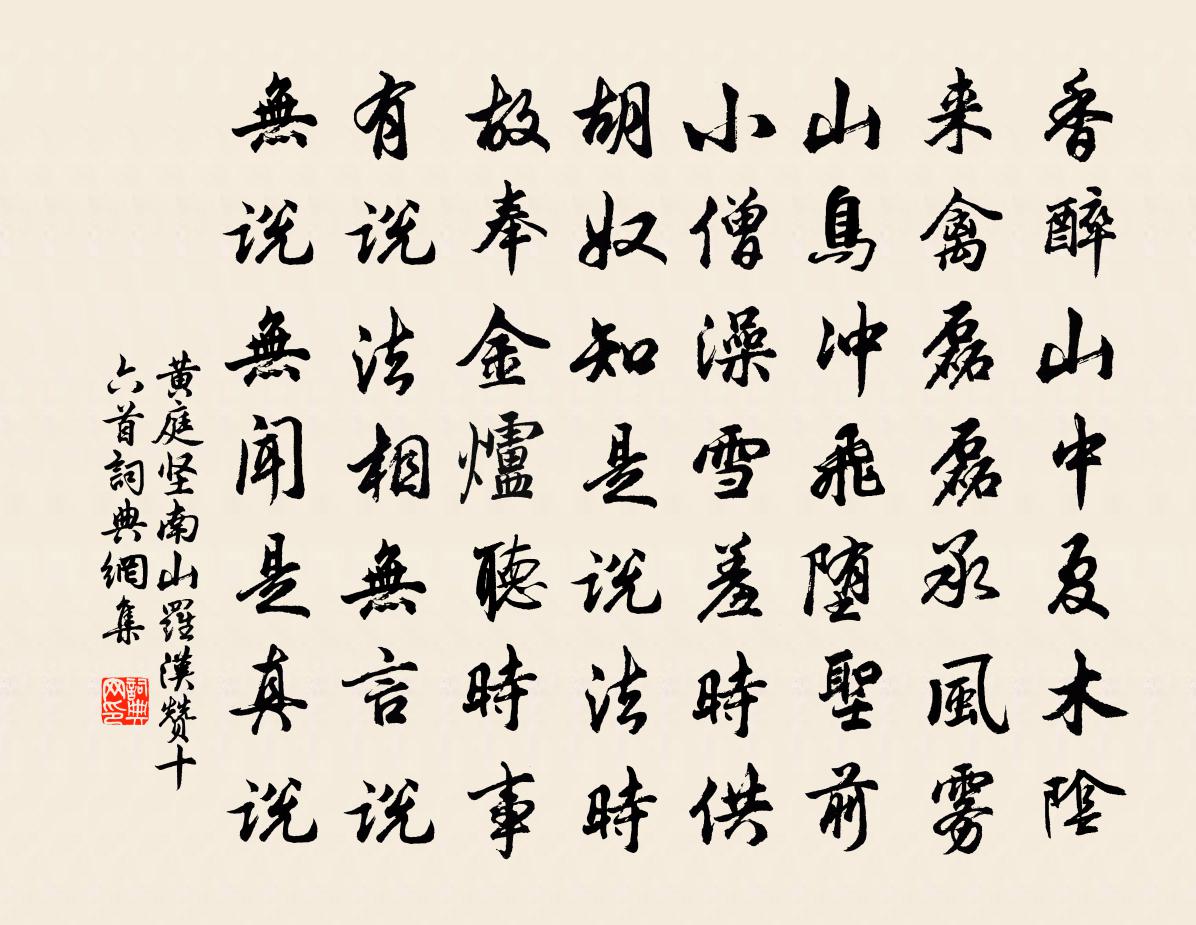 香醉山中夏木陰
来禽磊磊承風雾
山鳥冲飛堕聖前
小僧澡雪羞時供
胡奴知是说法時
故奉金爐聽時事
有说法相無言说
無说無聞是真说
黄庭坚南山羅漢赞十
六首詞典網集
詞典
网印